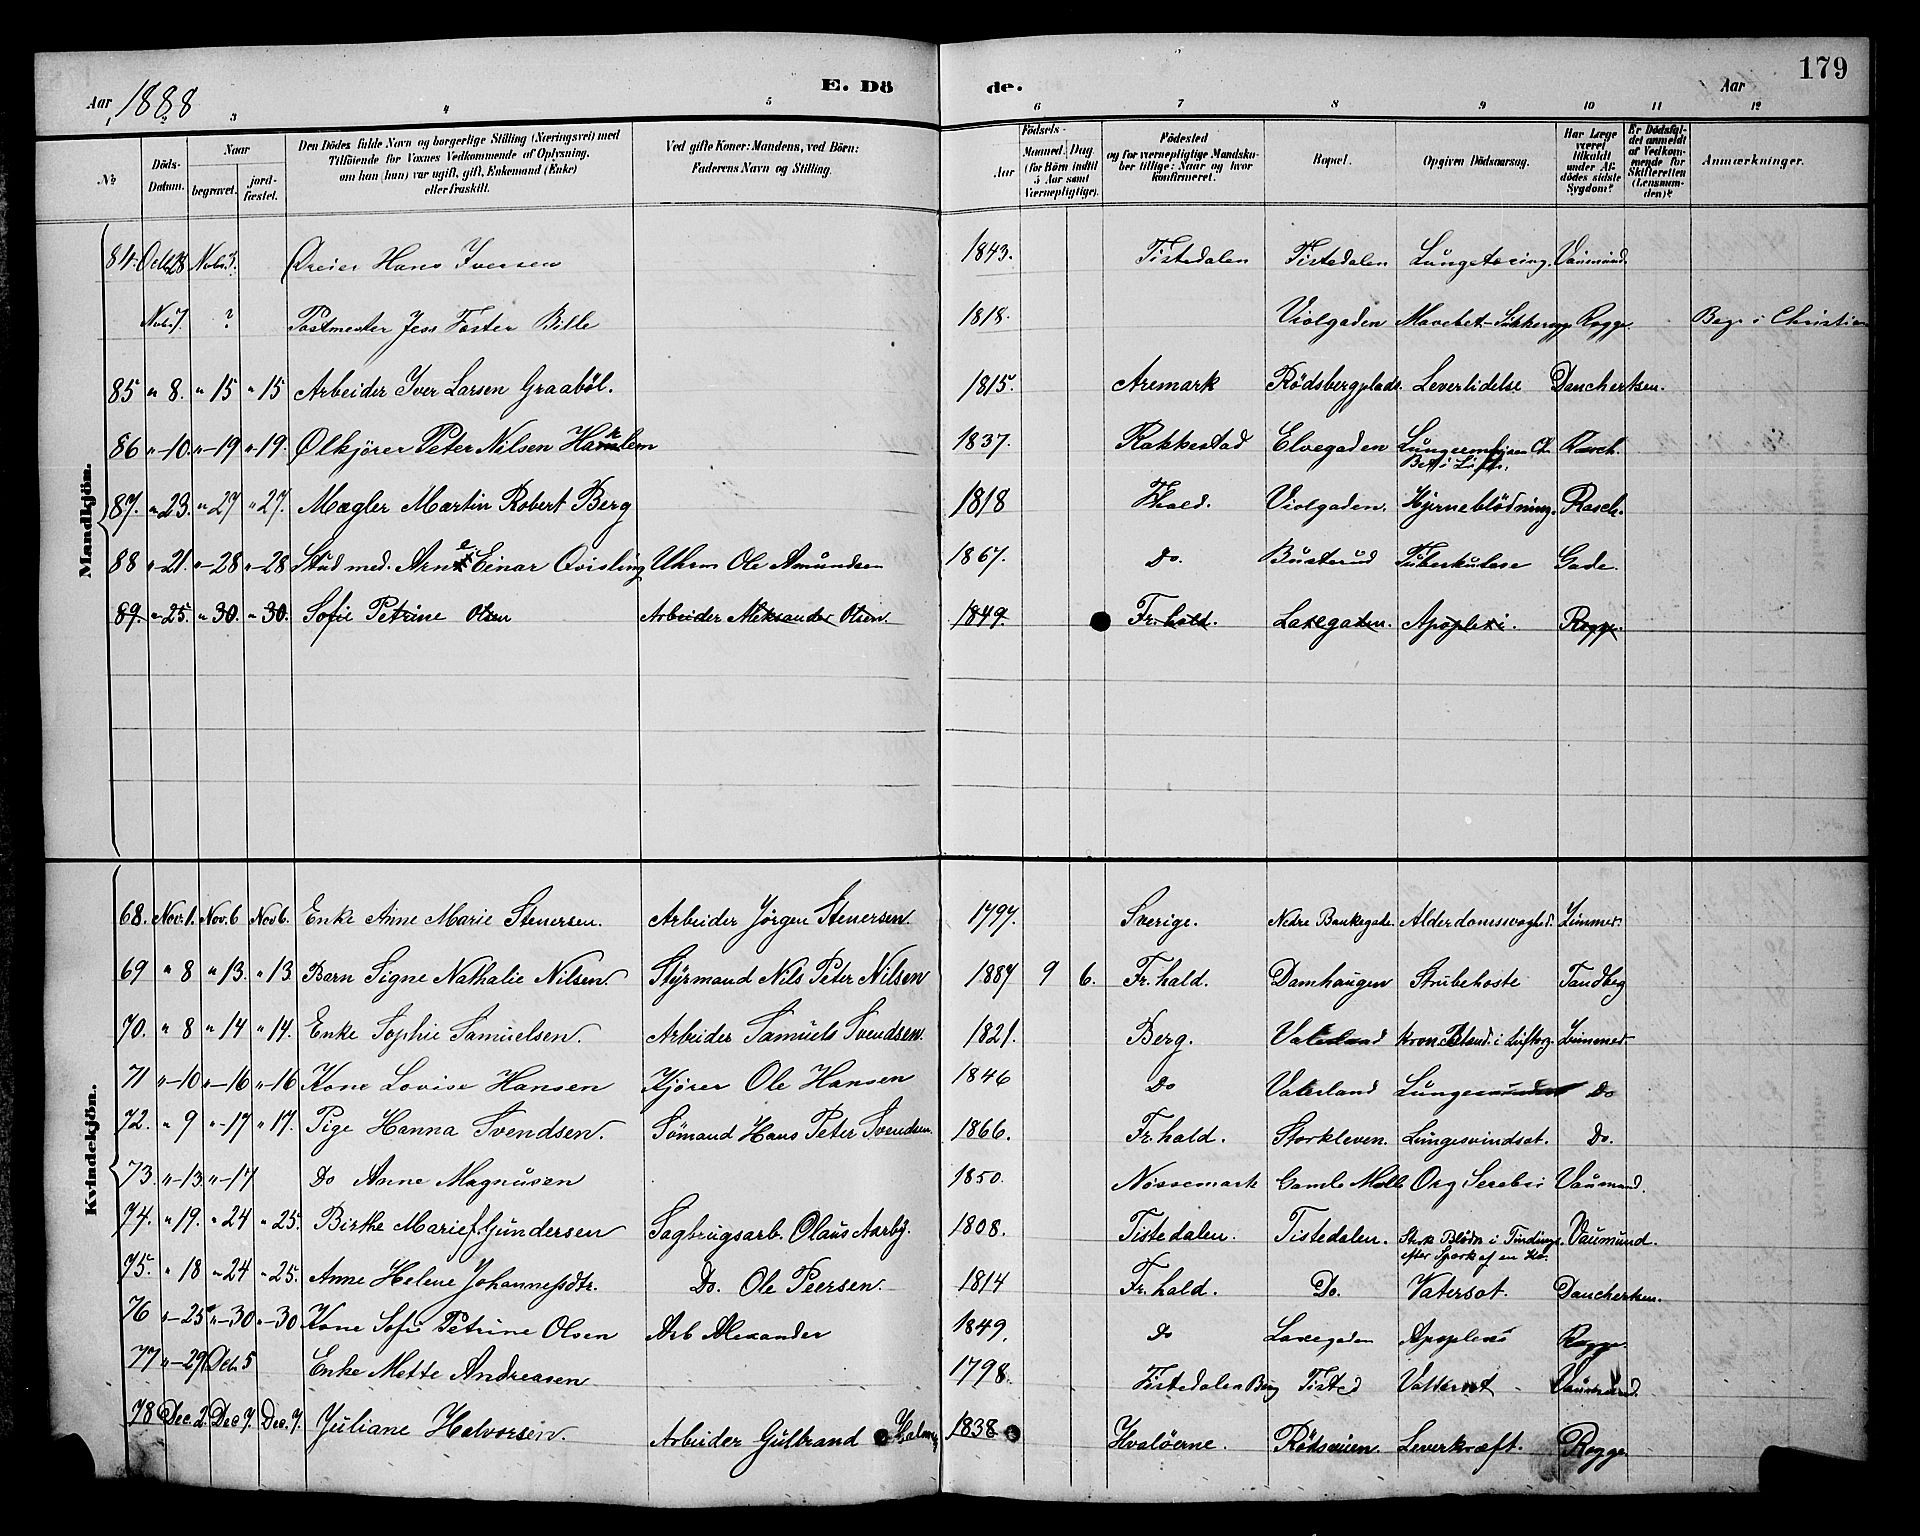 179
Aar 1888
E. Dö de.
Aar
1 2 3 4 5 6 7 8 9 10 11 12
№
Döds-Datum.
Naar begravet. jord-fæstet.
Den Dödes fulde Navn og borgerlige Stilling (Næringsvei) med Tilföiende for Voxnes Vedkommende af Oplysning, om han (hun) var ugift, gift, Enkemand (Enke) eller fraskilt.
Ved gifte Koner: Mandens, ved Börn: Faderens Navn og Stilling.
Födsels- Aar Maaned. Dag (for Börn indtil 5 Aar samt Værnepligtige).
Födested og for værnepligtige Mandska-ber tillige: Naar og hvor konfirmeret.
Bopæl.
Opgiven Dödsaarsag.
Har Læge været tilkaldt under Af-dödes sidste Sygdom?
Er Dödsfal-det anmeldt af Vedkom-mende for Skifteretten (Lensman-den)?
Anmærkninger.
Mandkjön.
84. Octb. 28 Novb. 3. Dreier Hans Iversen 1843. Tistedalen Tistedalen Vaumund
Novb. 7. ? Postmester Jess Foster Bille 1818. Violgaden Rogge. Begr. i Christian
85 " 8. " 15 " 15 Arbeider Iver Larsen Graaböl. 1815. Aremark Rödsbergplads. Leverlidelse Danchertsen.
86 " 10. " 19 " 19. Ölkjörer Peter Nilsen 1837. Rakkestad Elvegaden Rasch.
87. " 23. " 27 " 27. Mægler Martin Robert Berg 1818 Fhald. Violgaden. Hjerneblödning. Rasch.
88 " 21. " 28 " 28 Stud med. Arne Einar Qvisling Uhrm Ole Amundsen 1867. Do. Busterud Tuberkulose Gade.
89. " 25. " 30. " 30. Sofie Petrine Olsen Arbeider Aleksander Olsen. 1849. Fr.hald. Laxegaden. Apoplexi. Rogge.
Kvindekjön.
68. Nov. 1. Nov. 6 Nov 6. Enke Anne Marie Stenersen. Arbeider Jörgen Stenersen. 1797. Sverige. Nedre Bankegade. Alderdomssvaghed. Zimmer.
69 " 8 " 13. " 13 Barn Signe Nathalie Nilsen. Styrmand Nils Peter Nilsen 1887 9 6. Fr. hald. Damhaugen Strubehoste Tandberg
70. " 8 " 14 " 14. Enke Sophie Samuelsen. Arbeider Samuels Svendsen. 1821. Berg. Vaterland Zimmer
71 " 10 " 16 " 16 Kone Lovise Hansen Kjörer Ole Hansen 1846 Do Vaterland Do
72. " 9 " 17 " 17. Pige Hanna Svendsen. Sömand Hans Peter Svendsen. 1866. Fr. hald. Storkleven. Lungesvindsot. Do.
73. " 13 " 17 Do Anne Magnusen 1850. Nössemark Vaumund.
74. " 19. " 24 " 25. Birthe Marie f. Gundersen Sagbrugsarb. Olaus Aarby. 1808. Tistedalen. Tistedalen. Stærk Blödn i Tindingen efter Spark af en Ko. Vaumund.
75. " 18 " 24 " 25. Anne Helene Johannesdtr. Do. Ole Peersen. 1814 Fr. hald. Do. Vatersot. Danchertsen.
76 " 25 " 30 " 30 Kone Sofie Petrine Olsen Arb Alexander 1849. Do Laxegaden Apoplexi Rogge.
77 " 29 Decb. 5 Enke Mette Andreasen 1798. Tistedalen Berg Tisted Vattersot Vaumund.
78 Dec. 2. Dec 7. Dec. 7. Juliane Halvorsen. Arbeider Gulbrand 1838 Hvalöerne. Rödsveien. Leverkræft. Rogge